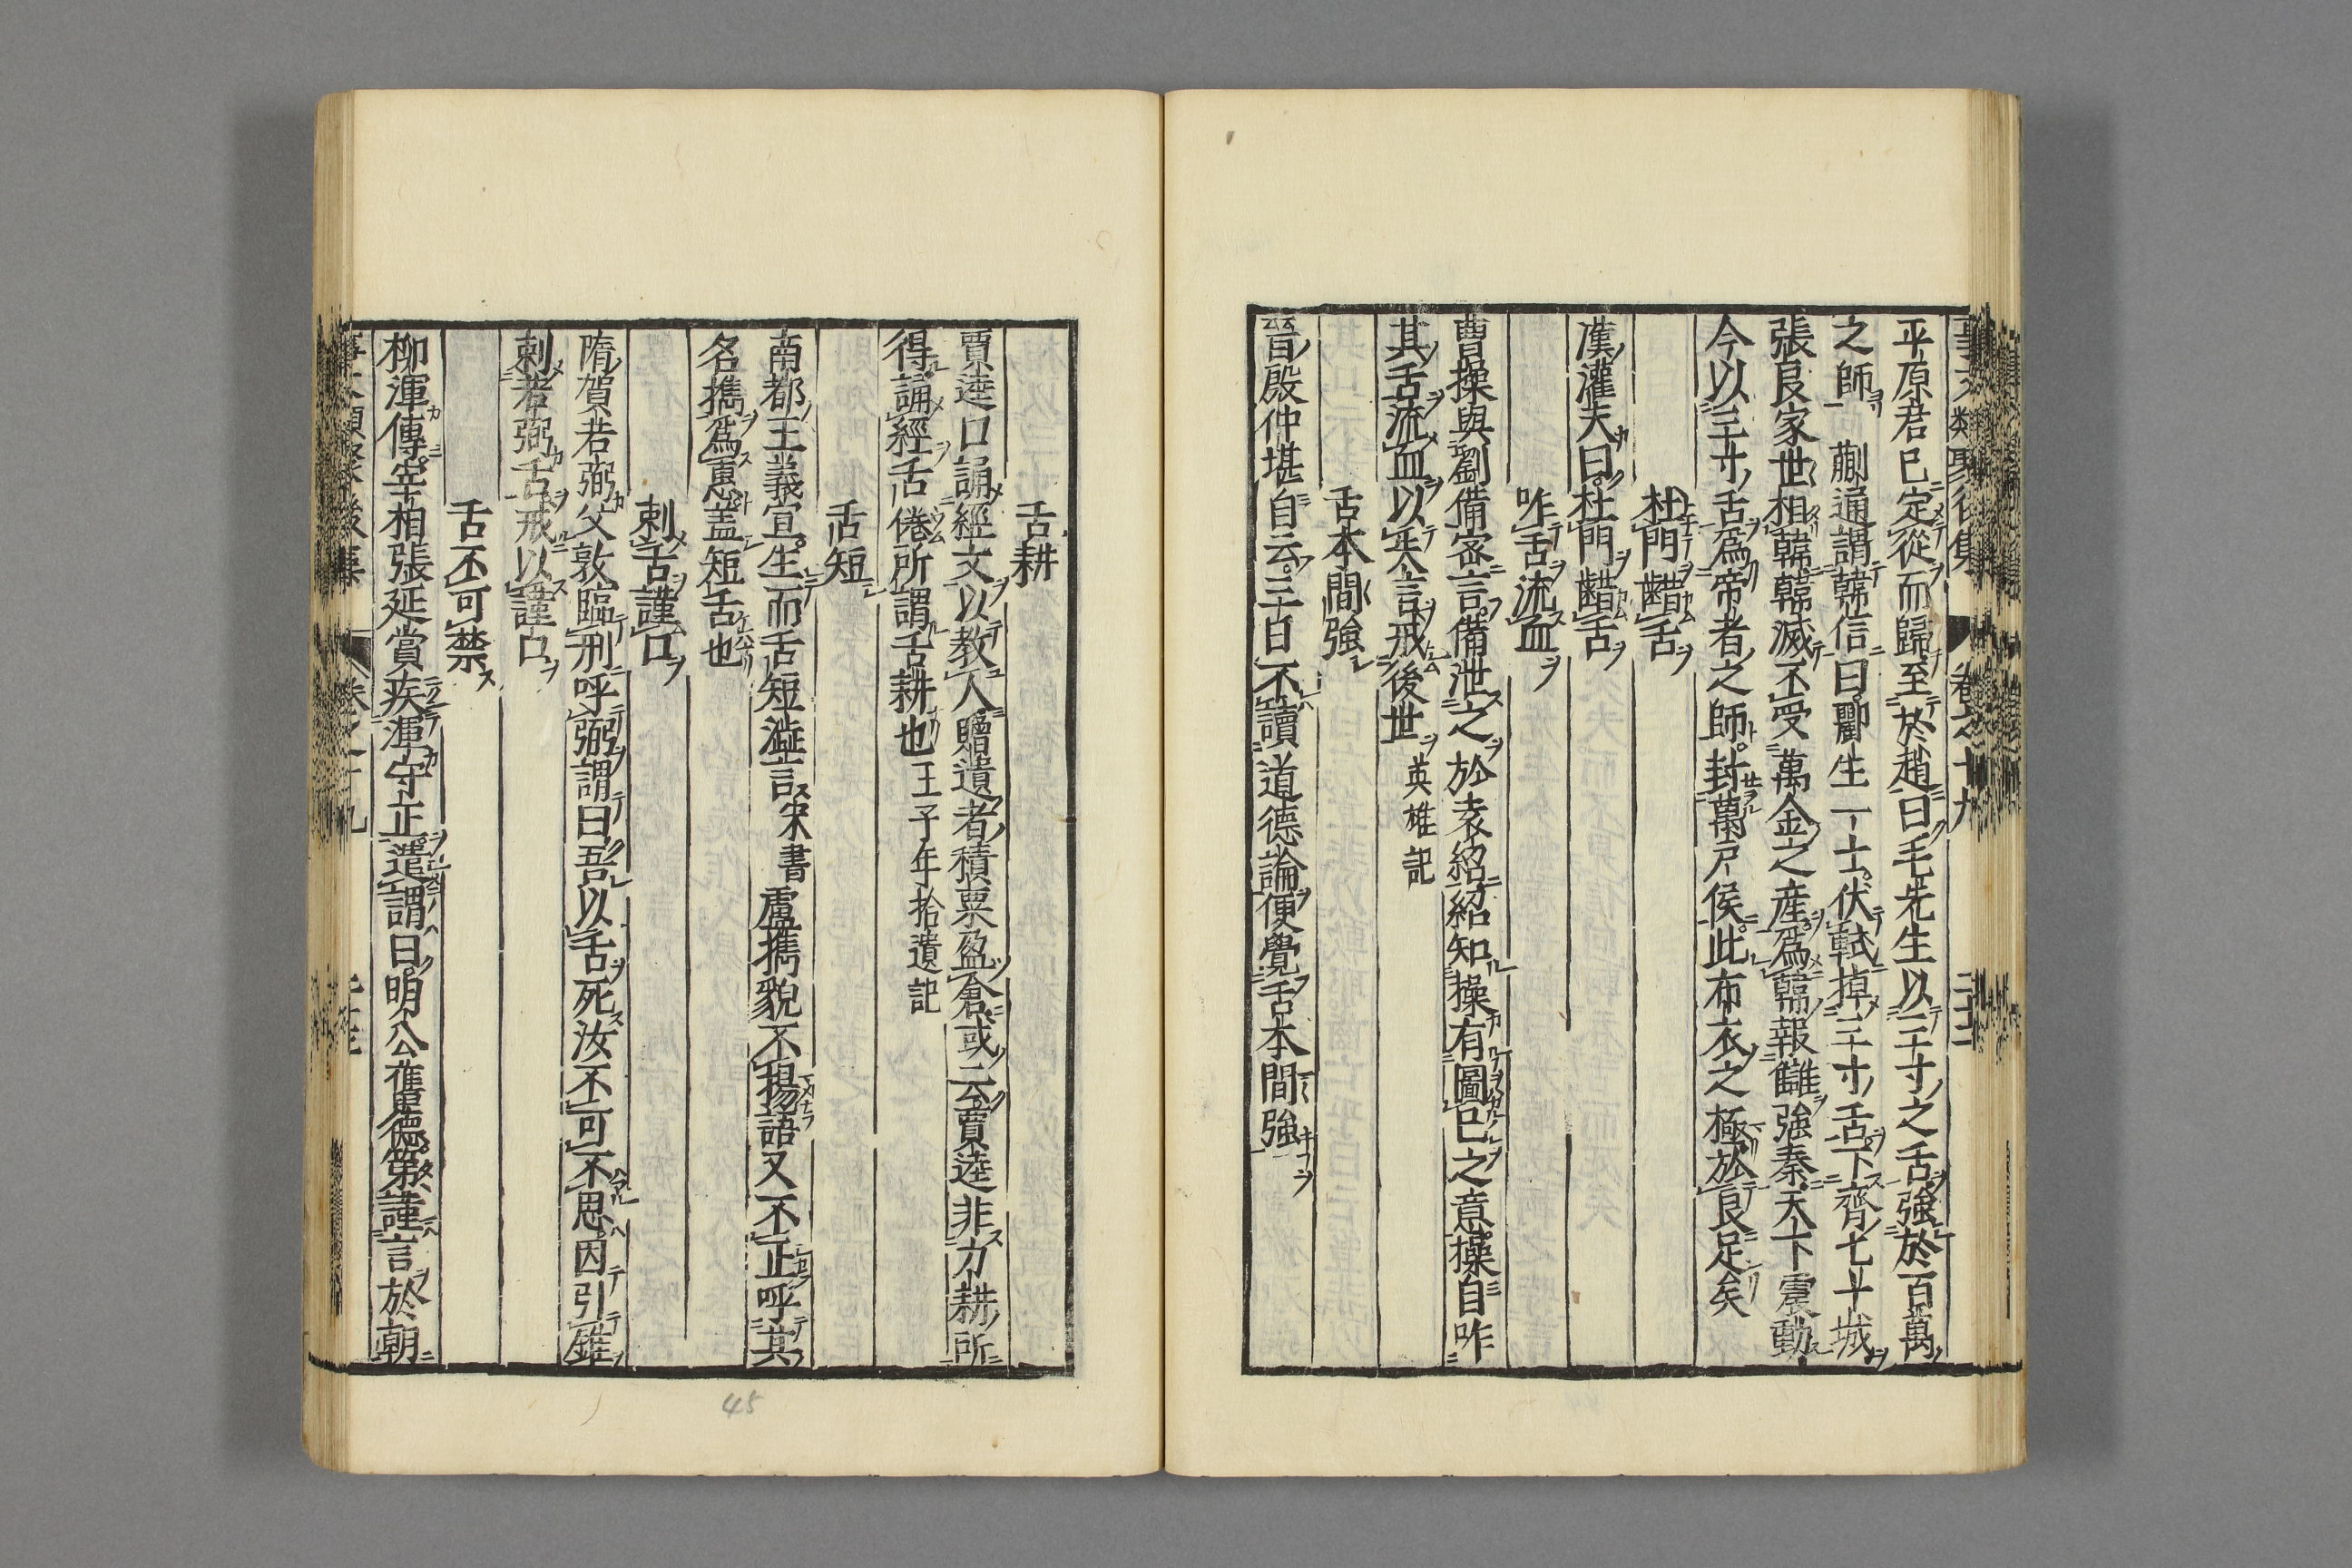 事文類聚後集 卷之十九 二十二
平原君已定從而歸至於趙曰毛先生以三寸之舌強於百萬
之師 蒯通謂韓信曰酈生一士伏軾掉三寸舌下齊七十城
張良家世相韓韓滅不受萬金之產爲韓報讎強秦天下震動
今以三寸舌爲帝者之師封萬戶侯此布衣之極於良足矣
杜門齰舌
漢灌夫曰杜門齰舌
咋舌流血
曹操與劉備密言備泄之於袁紹紹知操有圖己之意操自咋
其舌流血以失言戒後世 英雄記
舌本間強
晉殷仲堪自云三日不讀道德論便覺舌本間強
舌耕
賈逵口誦經文以教人贈遺者積粟盈倉或云賈逵非力耕所
得誦經舌倦所謂舌耕也 王子年拾遺記
舌短
南都王義宣生而舌短澁言 宋書 盧攜貌不揚語又不正呼其
名攜爲惠蓋短舌也
刺舌謹口
隋賀若弼父敦臨刑呼弼謂曰吾以舌死汝不可不思因引錐
刺若弼舌戒以謹口
舌不可禁
柳渾傳宰相張延賞疾渾守正遣謂曰明公舊德第謹言於朝
45